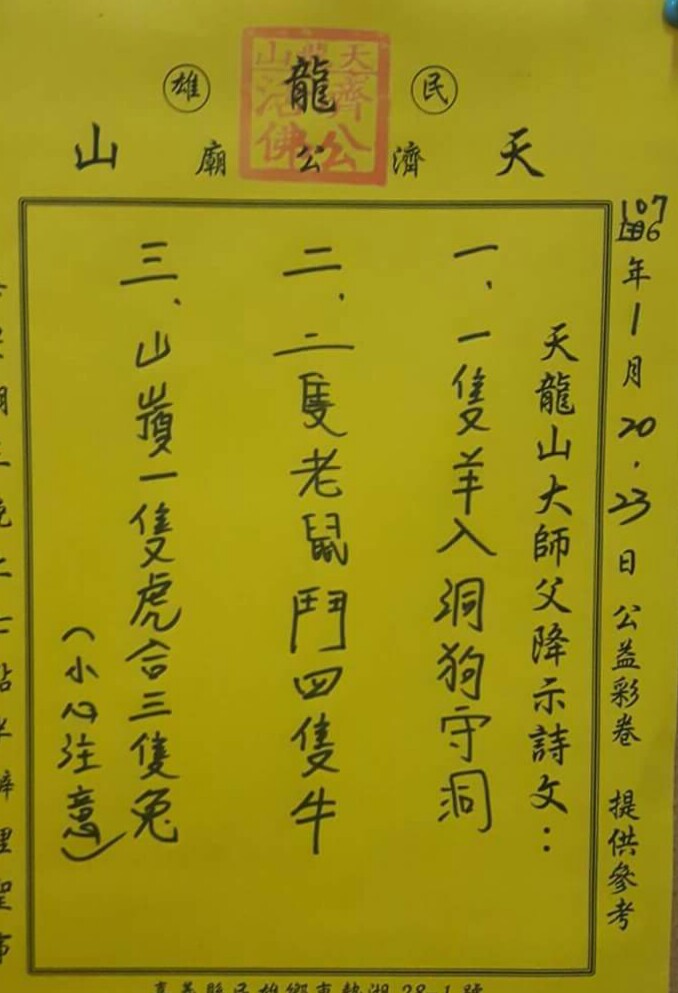 民雄
天龍山
濟公廟
天龍山
濟公活佛
107年1月20.23日公益彩卷 提供參考
天龍山大師父降示詩文：
一、一隻羊入洞狗守洞
二、二隻老鼠鬥四隻牛
三、山嶺一隻虎合三隻兔
（小心注意）